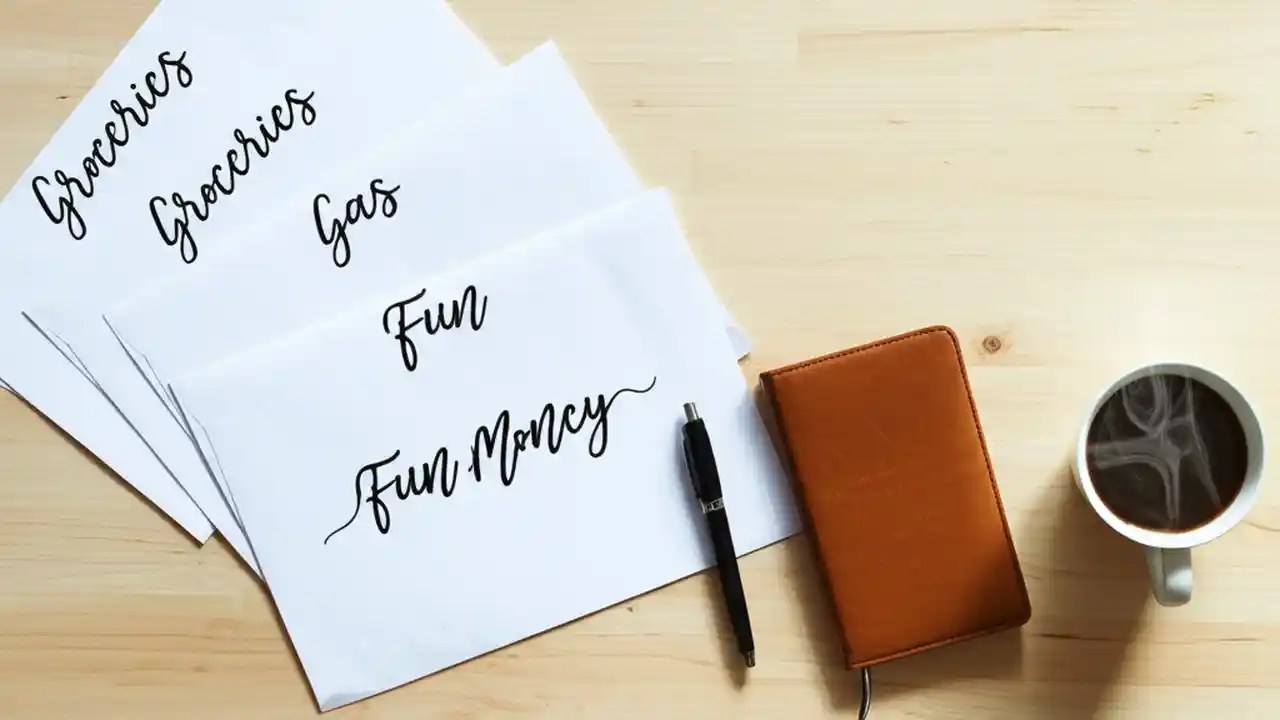 Groceries
Groceries
Gas
Fun
Fun Money